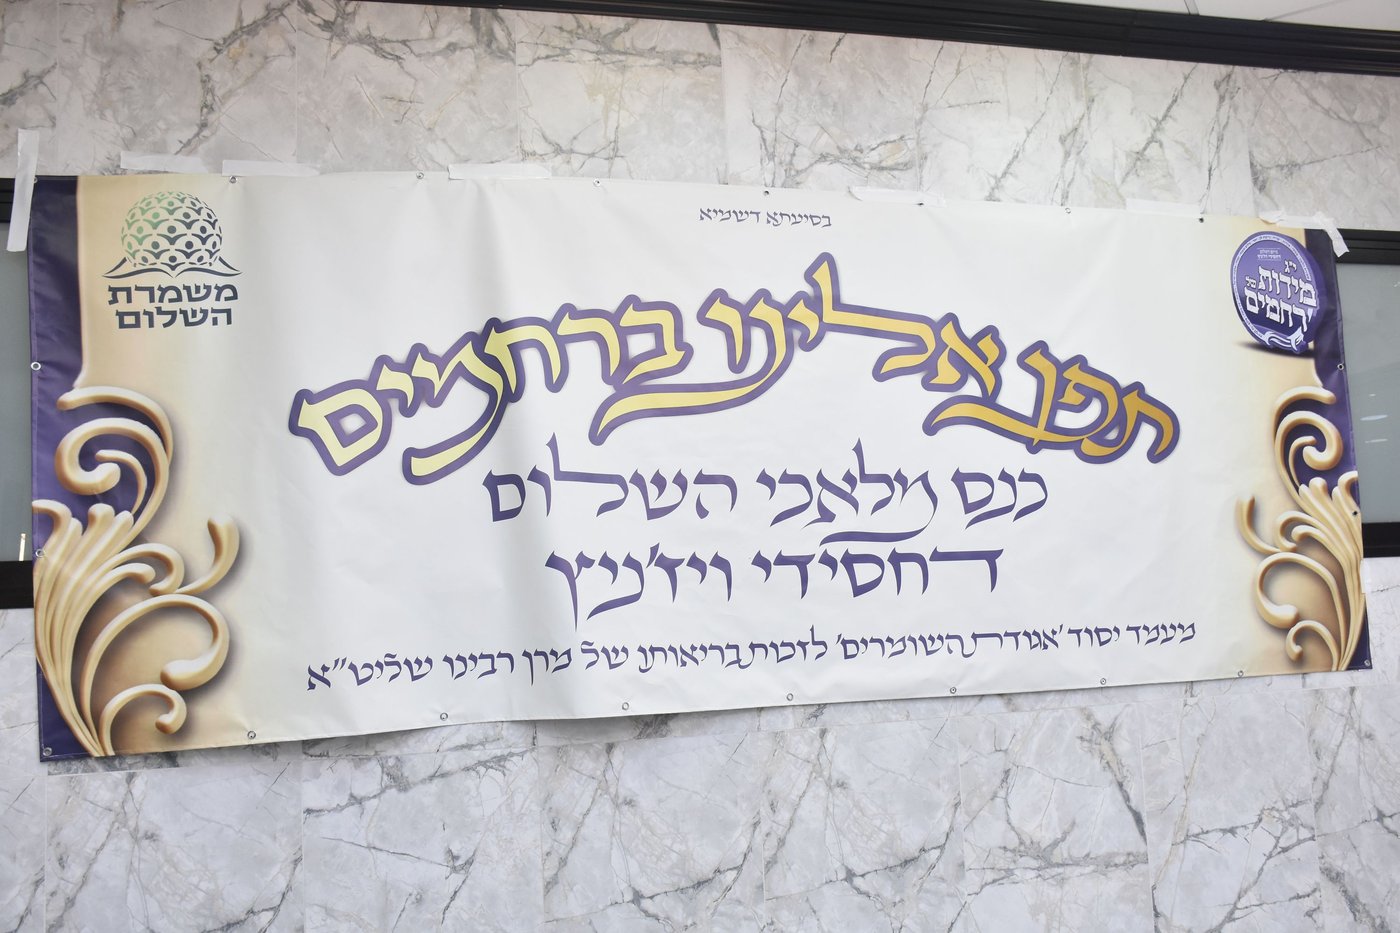 בסיעתא דשמיא
משמרת
השלום
י״ג
מידות של
רחמים
תפן אלינו ברחמים
כנס מלאכי השלום
דחסידי ויז'ניץ
מעמד יסוד 'אגודת השומרים' לזכות בריאותו של מרן רבינו שליט"א